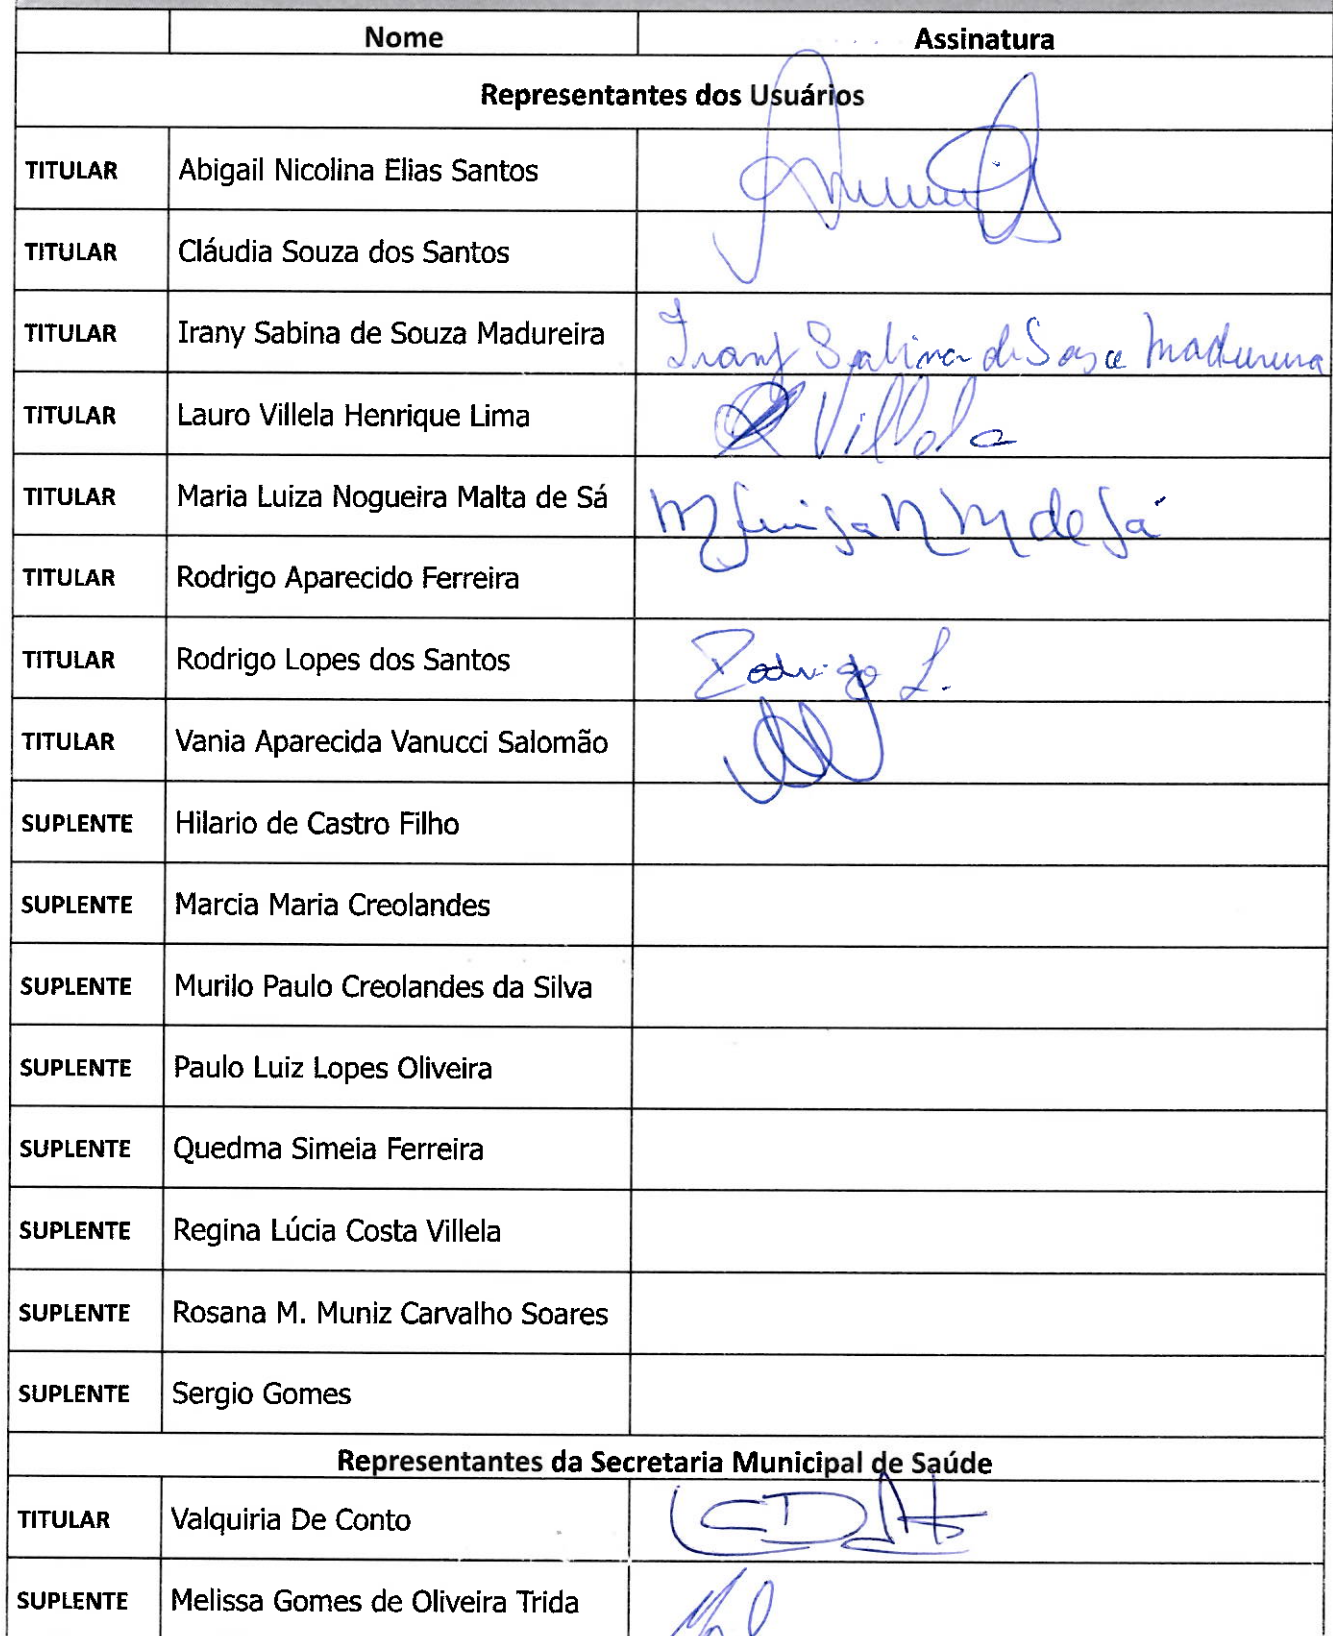 Nome Assinatura
Representantes dos Usuários
TITULAR Abigail Nicolina Elias Santos
TITULAR Cláudia Souza dos Santos
TITULAR Irany Sabina de Souza Madureira Irany Sabina de Souza Madureira
TITULAR Lauro Villela Henrique Lima Villela
TITULAR Maria Luiza Nogueira Malta de Sá M Luiza N M de Sá
TITULAR Rodrigo Aparecido Ferreira
TITULAR Rodrigo Lopes dos Santos Rodrigo L.
TITULAR Vania Aparecida Vanucci Salomão
SUPLENTE Hilario de Castro Filho
SUPLENTE Marcia Maria Creolandes
SUPLENTE Murilo Paulo Creolandes da Silva
SUPLENTE Paulo Luiz Lopes Oliveira
SUPLENTE Quedma Simeia Ferreira
SUPLENTE Regina Lúcia Costa Villela
SUPLENTE Rosana M. Muniz Carvalho Soares
SUPLENTE Sergio Gomes
Representantes da Secretaria Municipal de Saúde
TITULAR Valquiria De Conto
SUPLENTE Melissa Gomes de Oliveira Trida